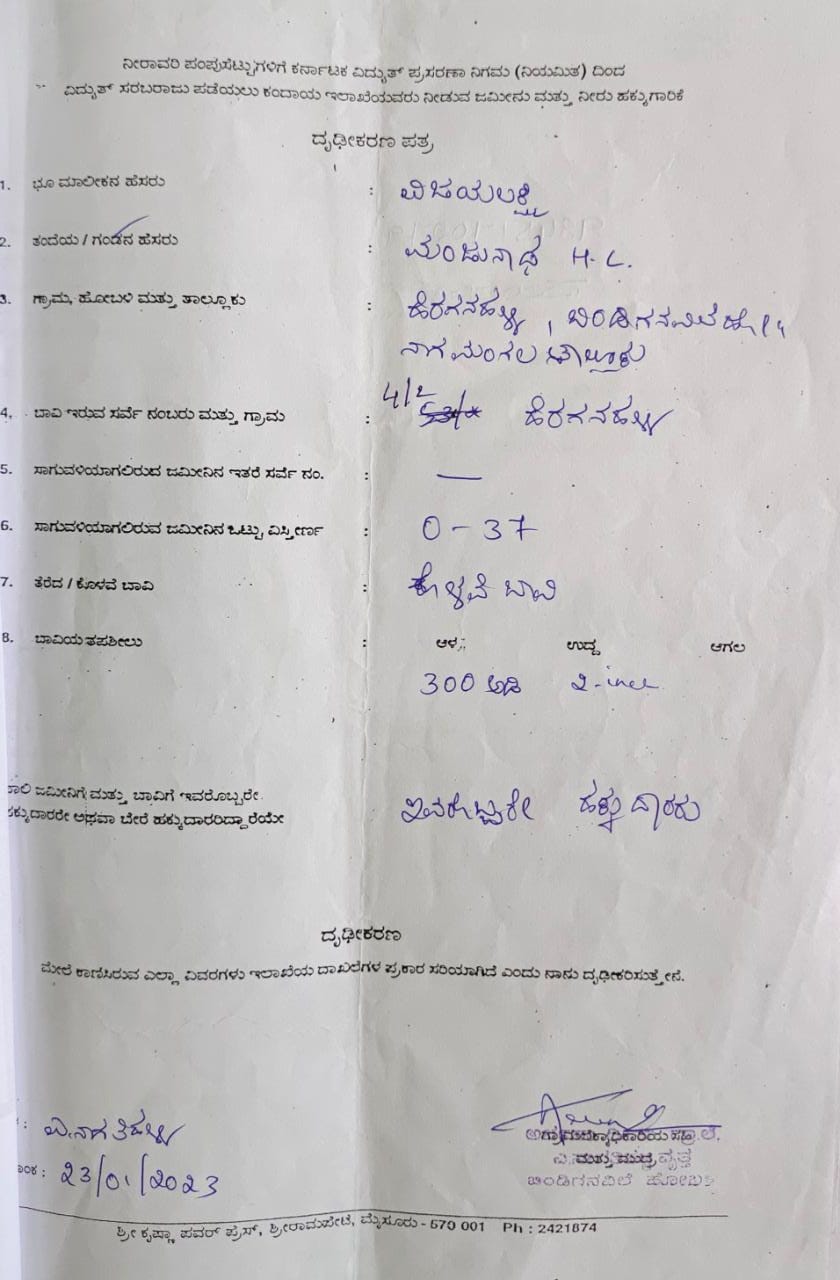 ನೀರಾವರಿ ಪಂಪುಸೆಟ್ಟುಗಳಿಗೆ ಕರ್ನಾಟಕ ವಿದ್ಯುತ್ ಪ್ರಸರಣಾ ನಿಗಮ (ನಿಯಮಿತ) ದಿಂದ
ವಿದ್ಯುತ್ ಸರಬರಾಜು ಪಡೆಯಲು ಕಂದಾಯ ಇಲಾಖೆಯವರು ನೀಡುವ ಜಮೀನು ಮತ್ತು ನೀರು ಹಕ್ಕುಗಾರಿಕೆ
ದೃಢೀಕರಣ ಪತ್ರ
1. ಭೂ ಮಾಲೀಕನ ಹೆಸರು : ವಿಜಯಲಕ್ಷ್ಮಿ
2. ತಂದೆಯ / ಗಂಡನ ಹೆಸರು : ಮಂಜುನಾಥ H.L.
3. ಗ್ರಾಮ, ಹೋಬಳಿ ಮತ್ತು ತಾಲ್ಲೂಕು : ಹೆರಗನಹಳ್ಳಿ, ಬಿಂಡಿಗನವಿಲೆ ಹೋ||
ನಾಗಮಂಗಲ ತಾಲ್ಲೂಕು
4/2
4. ಬಾವಿ ಇರುವ ಸರ್ವೆ ನಂಬರು ಮತ್ತು ಗ್ರಾಮ : ಹೆರಗನಹಳ್ಳಿ
5. ಸಾಗುವಳಿಯಾಗಲಿರುವ ಜಮೀನಿನ ಇತರೆ ಸರ್ವೆ ನಂ. : —
6. ಸಾಗುವಳಿಯಾಗಲಿರುವ ಜಮೀನಿನ ಒಟ್ಟು ವಿಸ್ತೀರ್ಣ : 0-37
7. ತೆರೆದ / ಕೊಳವೆ ಬಾವಿ : ಕೊಳವೆ ಬಾವಿ
8. ಬಾವಿಯ ತಪಶೀಲು : ಆಳ ಉದ್ದ ಆಗಲ
300 ಅಡಿ 2-inch
ಸಾಲಿ ಜಮೀನಿಗೆ ಮತ್ತು ಬಾವಿಗೆ ಇವರೊಬ್ಬರೇ
ಹಕ್ಕುದಾರರೇ ಅಥವಾ ಬೇರೆ ಹಕ್ಕುದಾರರಿದ್ದಾರೆಯೇ ಇವರೊಬ್ಬರೇ ಹಕ್ಕುದಾರರು
ದೃಢೀಕರಣ
ಮೇಲೆ ಕಾಣಿಸಿರುವ ಎಲ್ಲಾ ವಿವರಗಳು ಇಲಾಖೆಯ ದಾಖಲೆಗಳ ಪ್ರಕಾರ ಸರಿಯಾಗಿದೆ ಎಂದು ನಾನು ದೃಢೀಕರಿಸುತ್ತೇನೆ.
: ವಿ.ನಾಗತಿಹಳ್ಳಿ
ನಾಂಕ : 23/01/2023
ಮತ್ತು ಮುದ್ರೆ ವೃತ್ತ
ಬಿಂಡಿಗನವಿಲೆ ಹೋಬಳಿ
ಶ್ರೀ ಕೃಷ್ಣಾ ಪವರ್ ಪ್ರೆಸ್, ಶ್ರೀರಾಮಪೇಟೆ, ಮೈಸೂರು - 570 001 Ph : 2421874